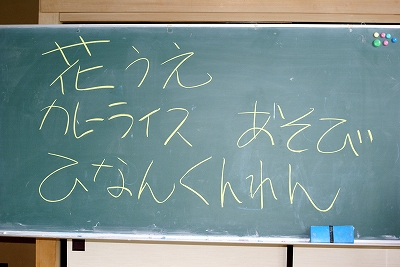 花うえ
カレーライス　おそび
ひなんくんれん